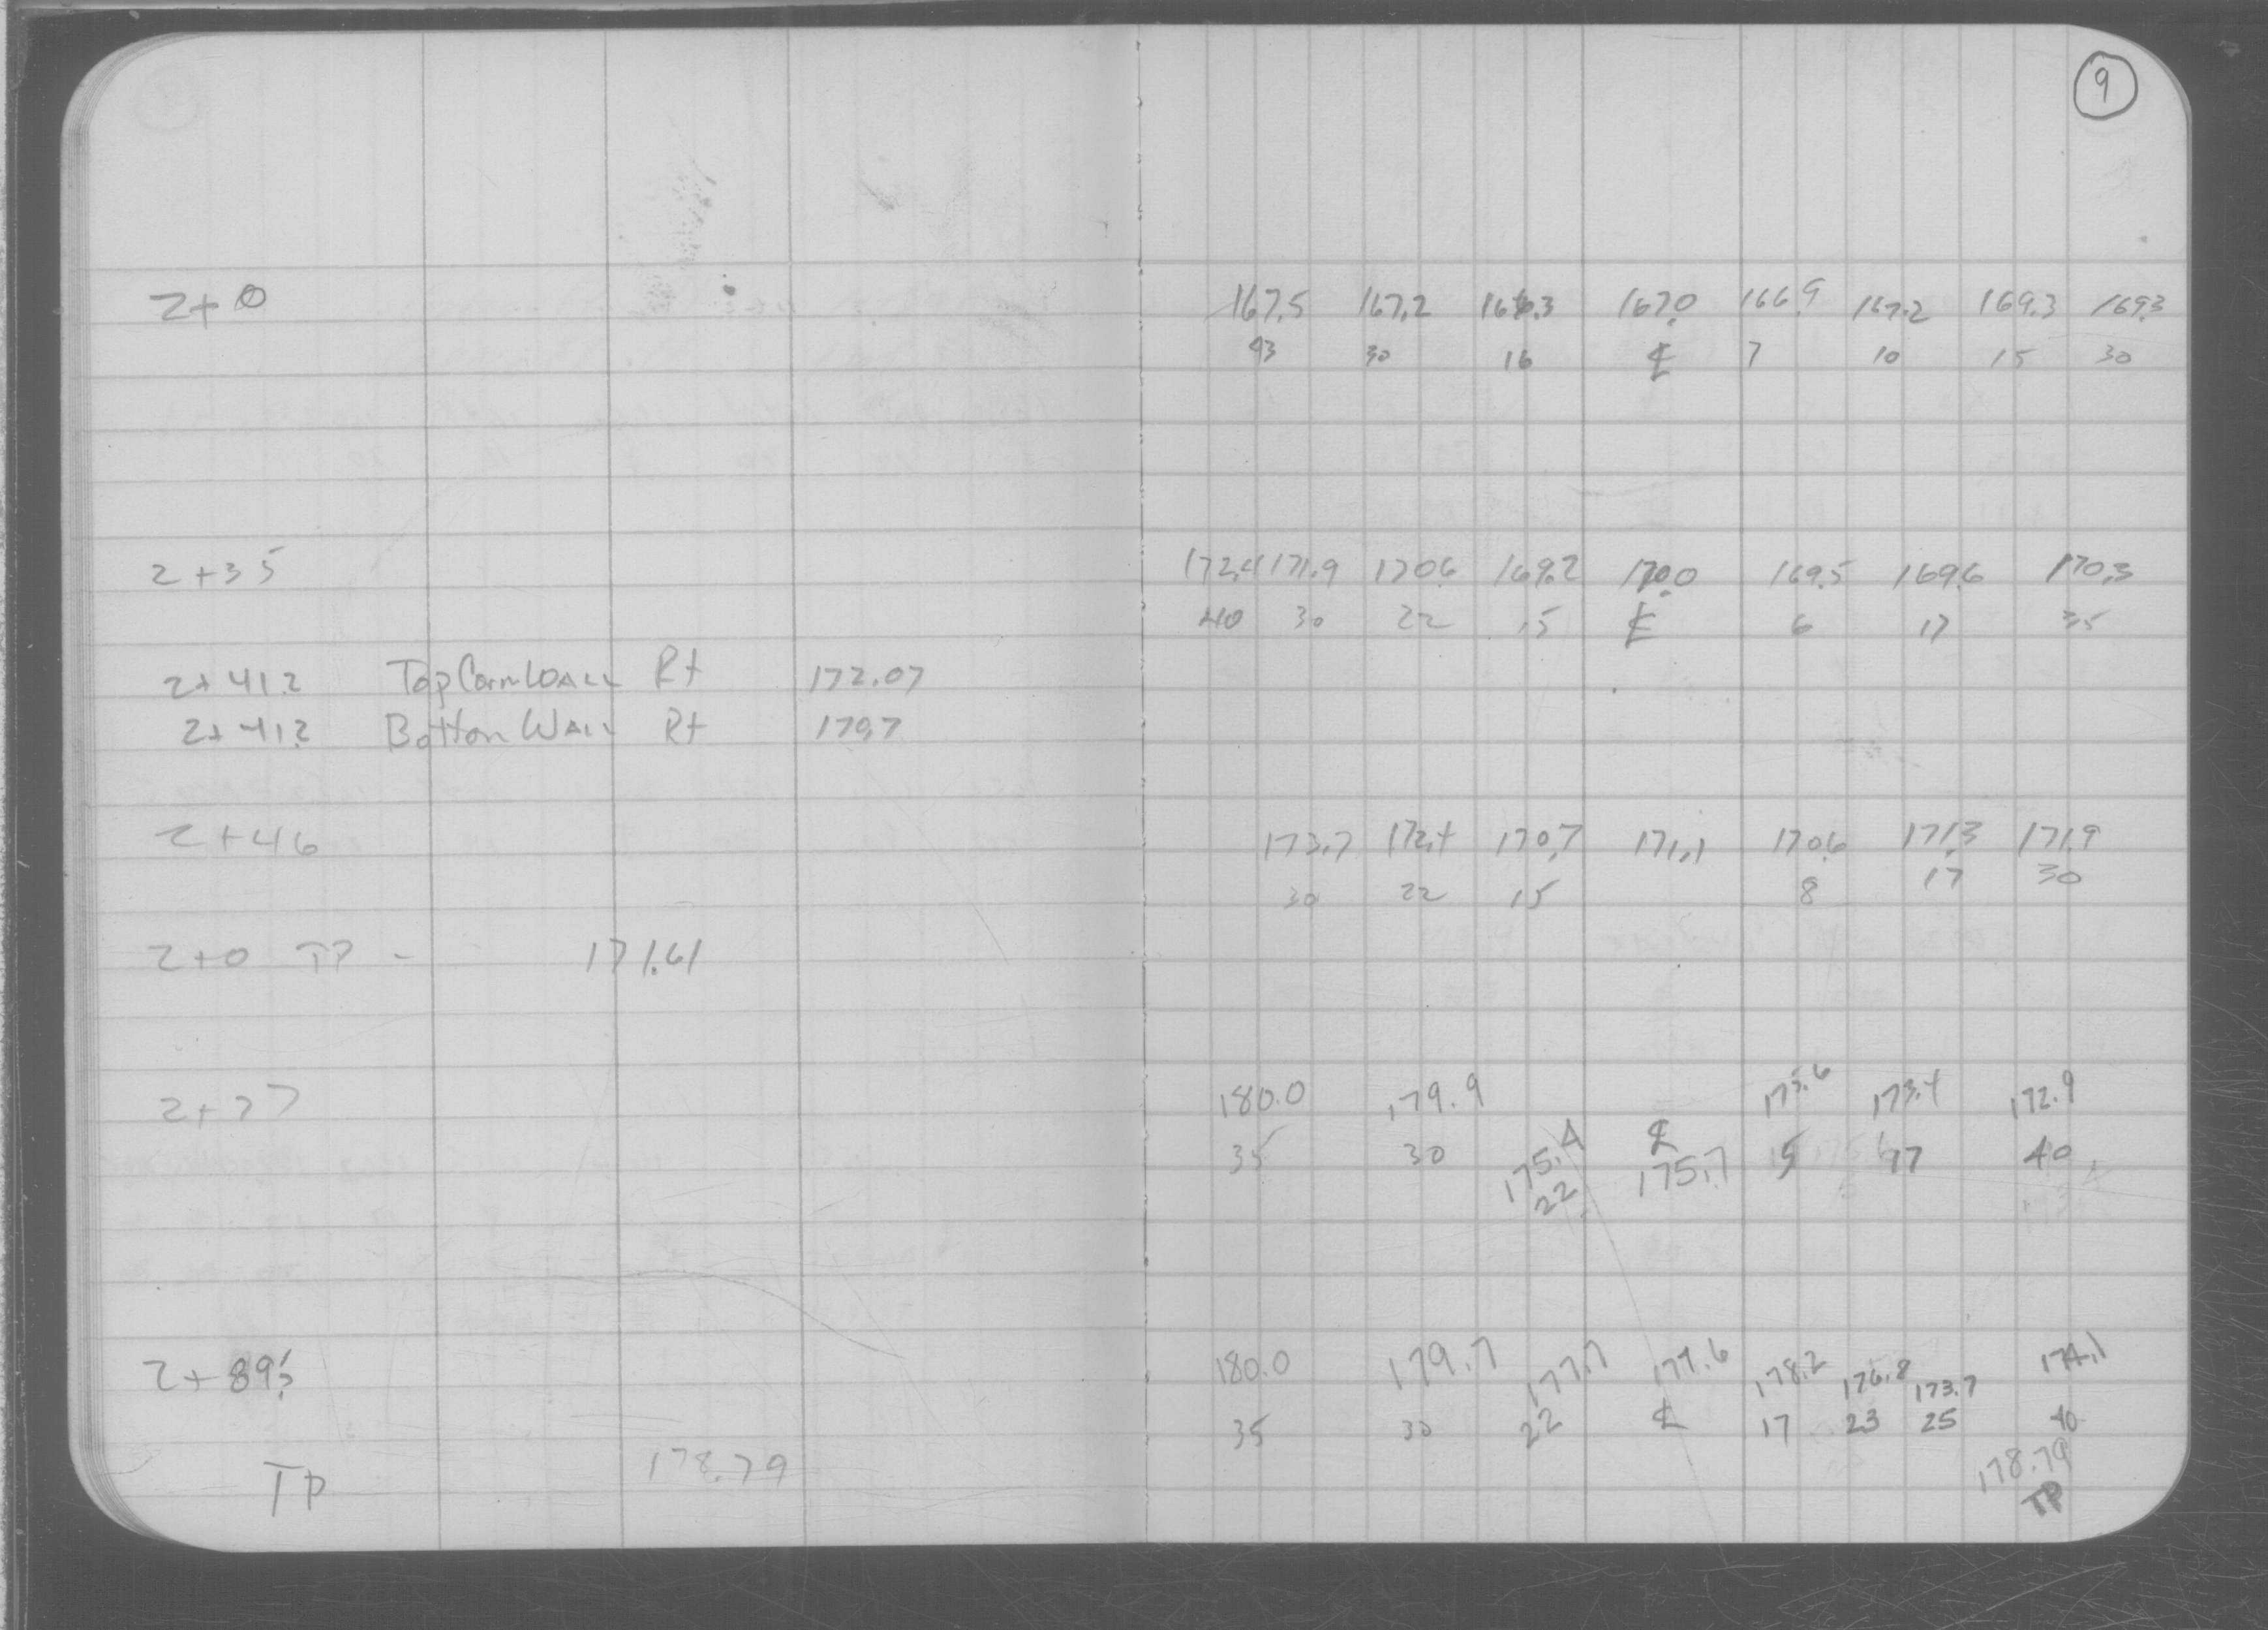 9
2+0 167.5 167.2 166.3 167.0 166.9 167.2 169.3 169.3
43 30 16 ℄ 7 10 15 30
2+35 172.4 171.9 170.6 169.2 170.0 169.5 169.6 170.3
40 30 22 15 ℄ 6 17 35
2+41.2 Top Corn WALL Rt 172.07
2+41.2 Bottom WALL Rt 170.7
2+46 173.7 172.4 170.7 171.1 170.6 171.3 171.9
30 22 15 8 17 30
2+0 TP - 171.61
2+77 180.0 179.9 175.4 ℄ 173.6 173.4 172.9
35 30 22 175.7 15 17 40
2+89.5 180.0 179.7 177.7 177.6 178.2 176.8 173.7 174.1
35 30 22 ℄ 17 23 25 40
TP 178.79 178.79
TP